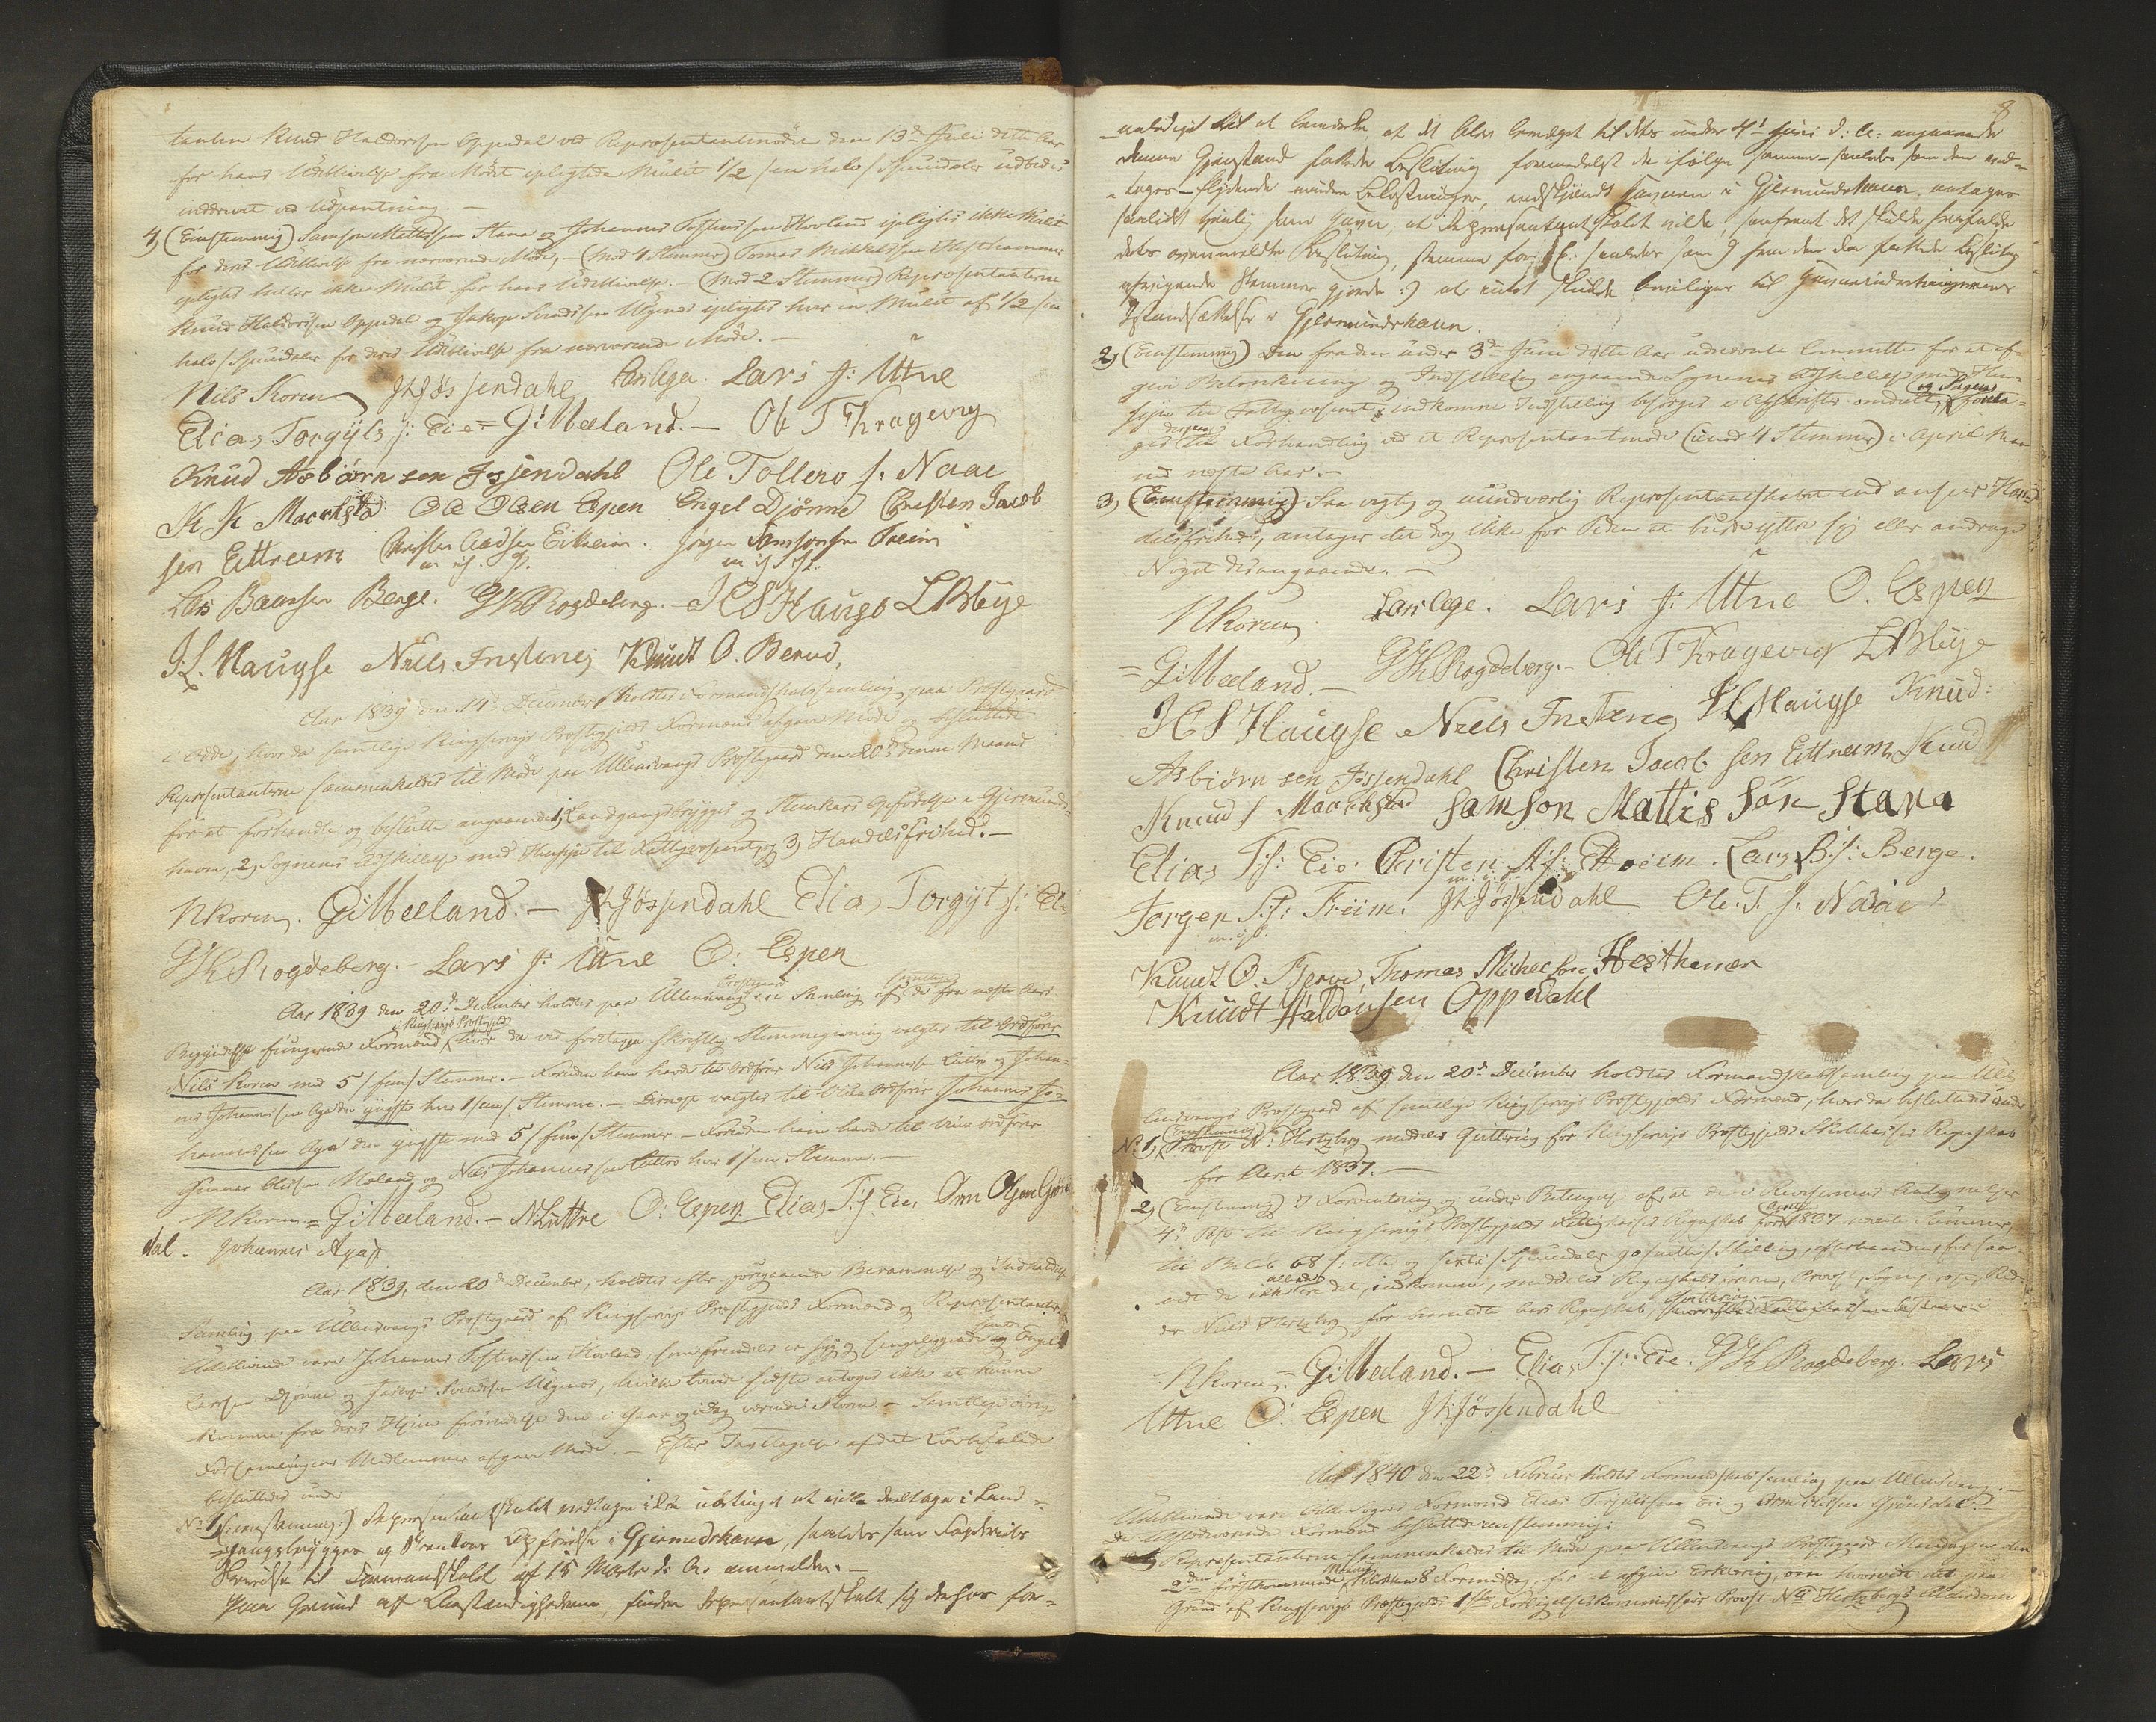 tanten Knud Haldorsen Oppedal ved Repræsentantmødet den 13de Juli dette Aar
for hans Udeblivelse fra Mødet ipligtede Mulct 1/2 /en halv/ Speciedaler udbedes
inddrevet ved Udpantning. —
4) (Eenstemmig) Samson Mattissen Stana og Johannes Tostenssen Hovland ipligtes ikke Mulct
for deres Udeblivelse fra nærværende Møde, — (mod 4 Stemmer) Tomas Mikkelssen Hesthammer
ipligtes heller ikke Mulct for hans Udeblivelse. (Mod 2 Stemmer) Repræsentanterne
Knud Haldorssen Oppedal og Jakop Svendssen Utgnes ipligtes hver en Mulct af 1/2 /en
halv/ Speciedaler for deres Udeblivelse fra nærværende Møde. —
Nils Koren JKJøssendahl Lars Aga. Lars J: Utne
Elias Torgyls f: Eie = GiMæland. — Ole T Kragevig
Knud Asbiørn sen Jøssendahl Ole Tollevs f: Naae
K K Maackstad Ole Olsen Espen Engel Djønne Christen Jacob
sen Eittreem Christen Aadsen Eitreim. Jørgen Samsonsen Freim
m. i. P. m i P
Lars Baarsen Berge. GHRogdeberg. — HSHaugse LBleye
J L. Haugse Niels Instenes Knut O. Berve,
Aar 1839 den 14de December holdtes Formandskabssamling paa Præstgaard
i Odde, hvor da samtlige Kingserviks Præstgjelds Formænd afgave Møde og besluttede
Repræsentanterne sammenkaldes til Møde paa Ullensvangs Præstegaard den 20de denne Maaned
for at forhandle og beslutte angaaende 1) Landgangsbrygges og Steenkars Opførelse i Gjermunds-
havn, 2) Sognenes Adskillelse med Hensyn til Fattigvæsenet, og 3) Handelsfrihed. —
NKoren. GiMæland. — JKJøssendahl Elias Torgyls f: Eie
GHRogdeberg. — Lars J: Utne O: Espen
Aar 1839 den 20de December holdtes paa Ullensvang Præstgaard en Samling af samtlige de fra næste Aars
Begyndelse fungerende Formænd i Kingserviks Præstgjeld, hvor da ved foretagen skriftlig Stemmegivning valgtes til Ordfører
Nils Koren med 5 /fem/ Stemmer. — Foruden ham havde til Ordfører Nils Johannessen Luttro og Johan-
nes Johannessen Aga den yngste hver 1 /een/ Stemme. — Dernæst valgtes til Viceordfører Johannes Jo-
hannessen Aga den yngste med 5 /fem/ Stemmer. — Foruden ham havde til Viceordfører
Gunnar Olssen Mæland og Nils Johannessen Luttro hver 1 /een/ Stemme. —
NKoren. = GiMæland. — NLuttro O: Espen Elias T: f: Eie Orm Olsen Grøns
dal. Johannes Agass
Aar 1839, den 20de December, holdtes efter foregaaende Berammelse og Indkaldelse
Samling paa Ullensvangs Præstgaard af Kingserviks Præstegjelds Formænd og Repræsentanter.
Udeblivende vare Johannes Tostenssen Hovland, som fremdeles er syg og sengeliggende, samt Engel
Larssen Djønne og Jakop Svendssen Utgnes, hvilke tvende sidste antoges ikke at kunne
komme fra deres Hjem formedelst den i Gaar og idag værende Storm. — Samtlige øvrige
Forsamlingens Medlemmer afgave Møde. — Efter Iagttagelse af det Lovbefalede
besluttedes under
No 1) (: eenstemmig:) Repræsentantskabet vedtager ikke ubetinget at ville deeltage i Land-
=gangsbrygges og Steenkars Opførelse i Gjermundshavn, saaledes som Fogderiets
Skrivelse til Formandskabet af 15 Marts d: A: anmelder. —
Paa Grund af Omstændighederne, finder Repræsentantskabet sig derhos for-
8
anlediget til at bemærke, at det blev bevæget til dets under 4de Juni d: A: angaaende
denne Gjenstand fattede Beslutning formedelst de ifølge samme — saaledes som den and-
-tages — flydende mindre Belastninger, endskjøndt Havnen i Gjermundshavn antages
saalidet gavnlig som Havn, at Repræsentantskabet vilde, saafremt det skulde frafalde
dets ovenmeldte Beslutning, stemme for, (: saaledes som 9 fra den da fattede Beslutning
afvigende Stemmer gjorde :) at intet skulde bevilges til Havneindretningernes
Istandsættelse i Gjermundshavn.
2) (Eenstemmig) Den fra den under 3de Juni dette Aar udnævnte Committe for at af-
give Betænkning og Indstilling angaaende Sognenes Adskillelse med Hen-
syn til Fattigvæsenet indkomne Indstilling besørges i Afskrifter omdeelt, og Sagen foreta-
ges derpaa til Forhandling ved et Repræsentantmøde (mod 4 Stemmer) i April Maa-
ned næste Aar. —
3) (Eenstemmig) Saa vigtig og uundværlig Repræsentantskabet end anseer Han-
delsfrihed, antager det dog ikke for Tiden at burde yttre sig eller andrage
Noget desangaaende. —
NKoren Lars Aga. Lars J: Utne O. Espen
= GiMæland. — GHRogdeberg. — Ole T Kragevig LBleye
HSHaugse Niels Instenes JLHaugse Knud
Asbiørn sen Jøssendahl Christen Jacob sen Eittreem Knud
Knud f Maackstad Samson Mattis Søn Stana
Elias T: f: Eie. Christen A: f: Eitreim. Lars B: f: Berge.
Jørgen S: f: Freim. JKJøssendahl Ole. T. f. Naae
Knut O. Berve, Thomas Mickelsen Hesthamer
Knudt Haldorsen Oppedahl
Aar 1839 den 20de December holdtes Formandskabssamling paa Ul-
lensvangs Præstgaard af samtlige Kingserviks Præstgjelds Formænd, hvor da besluttedes under
No 1) (Eenstemmig) Provst N: Hertzberg meddeles Qvittering for Kingserviks Præstgjelds Skolekasses Regnskab
for Aaret 1837. —
2) (Eenstemmig) I Forventning og under Betingelse af, at de i Revisionens Antegnelser
4de Post til Kingserviks Præstgjelds Fattigkasses Regnskab for Aaret 1837 nævnte Summer,
til Beløb 68 /: otte og sexti :/ Speciedaler 90 /nitti/ Skilling, efterhaanden, forsaa-
vidt de ikke allerede ere det, indkomme, meddeles Regnskabsføreren, Provst, Sognepræst, Rid-
der Niels Hertzberg for bemeldte Aars Regnskab, Qvittering.
NKoren. = GiMæland. — Elias T: f: Eie. GHRogdeberg. — Lars
Utne O: Espen JKJøssendahl
Aar 1840 den 22de Februar holdtes Formandskabssamling paa Ullensvang. —
Udeblivende vare Odde Sogns Formænd Elias Torjulssen Eie og Orm Olssen Grønsdal.
De tilstedeværende Formænd besluttede eenstemmig:
1) Repræsentanterne sammenkaldes til Møde paa Ullensvangs Præstgaard Mandagen den
2den førstkommende Marts, Klokken 8 Formiddag, for at afgive Erklæring, om hvorvidt det paa
Grund af Kingserviks Præstegjelds 1ste Forligelseskommissair Provst Ns Hertzbergs Alderdom